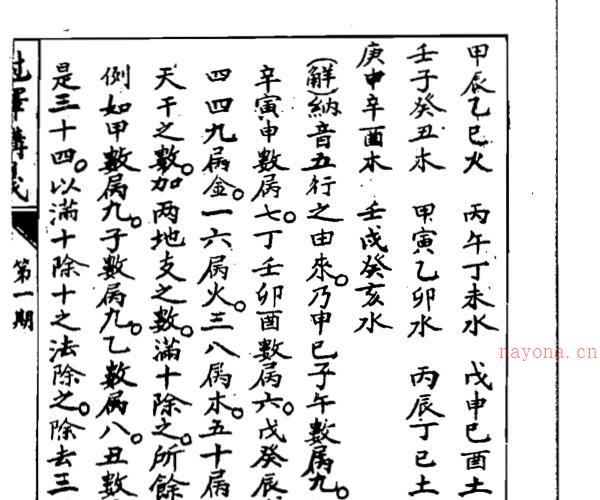 甲辰乙巳火 丙午丁未水 戊申已酉土
壬子癸丑木 甲寅乙卯水 丙辰丁巳土
庚申辛酉木 壬戌癸亥水
(解)納音五行之由來。乃甲巳子午數屬九。
辛寅申數屬七。丁壬卯酉數屬六。戊癸辰
四四九屬金。一六屬火。三八屬木。五十屬
天干之數。加两地支之數。滿十除之。所餘
例如甲數屬九。子數屬九。乙數屬八。丑數
是三十四。以滿十除十之法除之。除去三
擇講義 第一期
nayona.cn